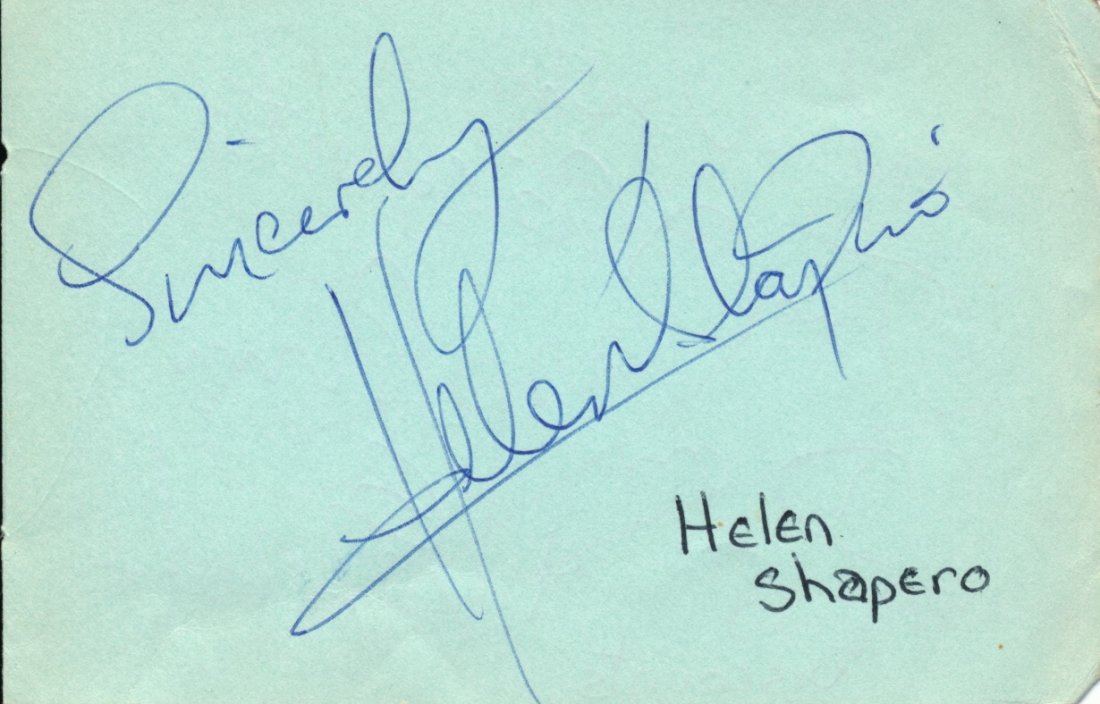 Sincerely
Helen Shapiro
Helen
Shapero